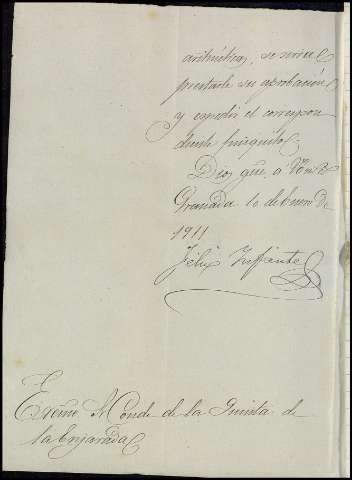 aritmética, se sirva
prestarle su aprobación
y expedir el correspon
diente finiquito.
Dios gue. á V. E.
Granada 10 de Enero de
1911
Félix Infante
Excmo. Sr. Conde de la Quinta de
la Enjarada